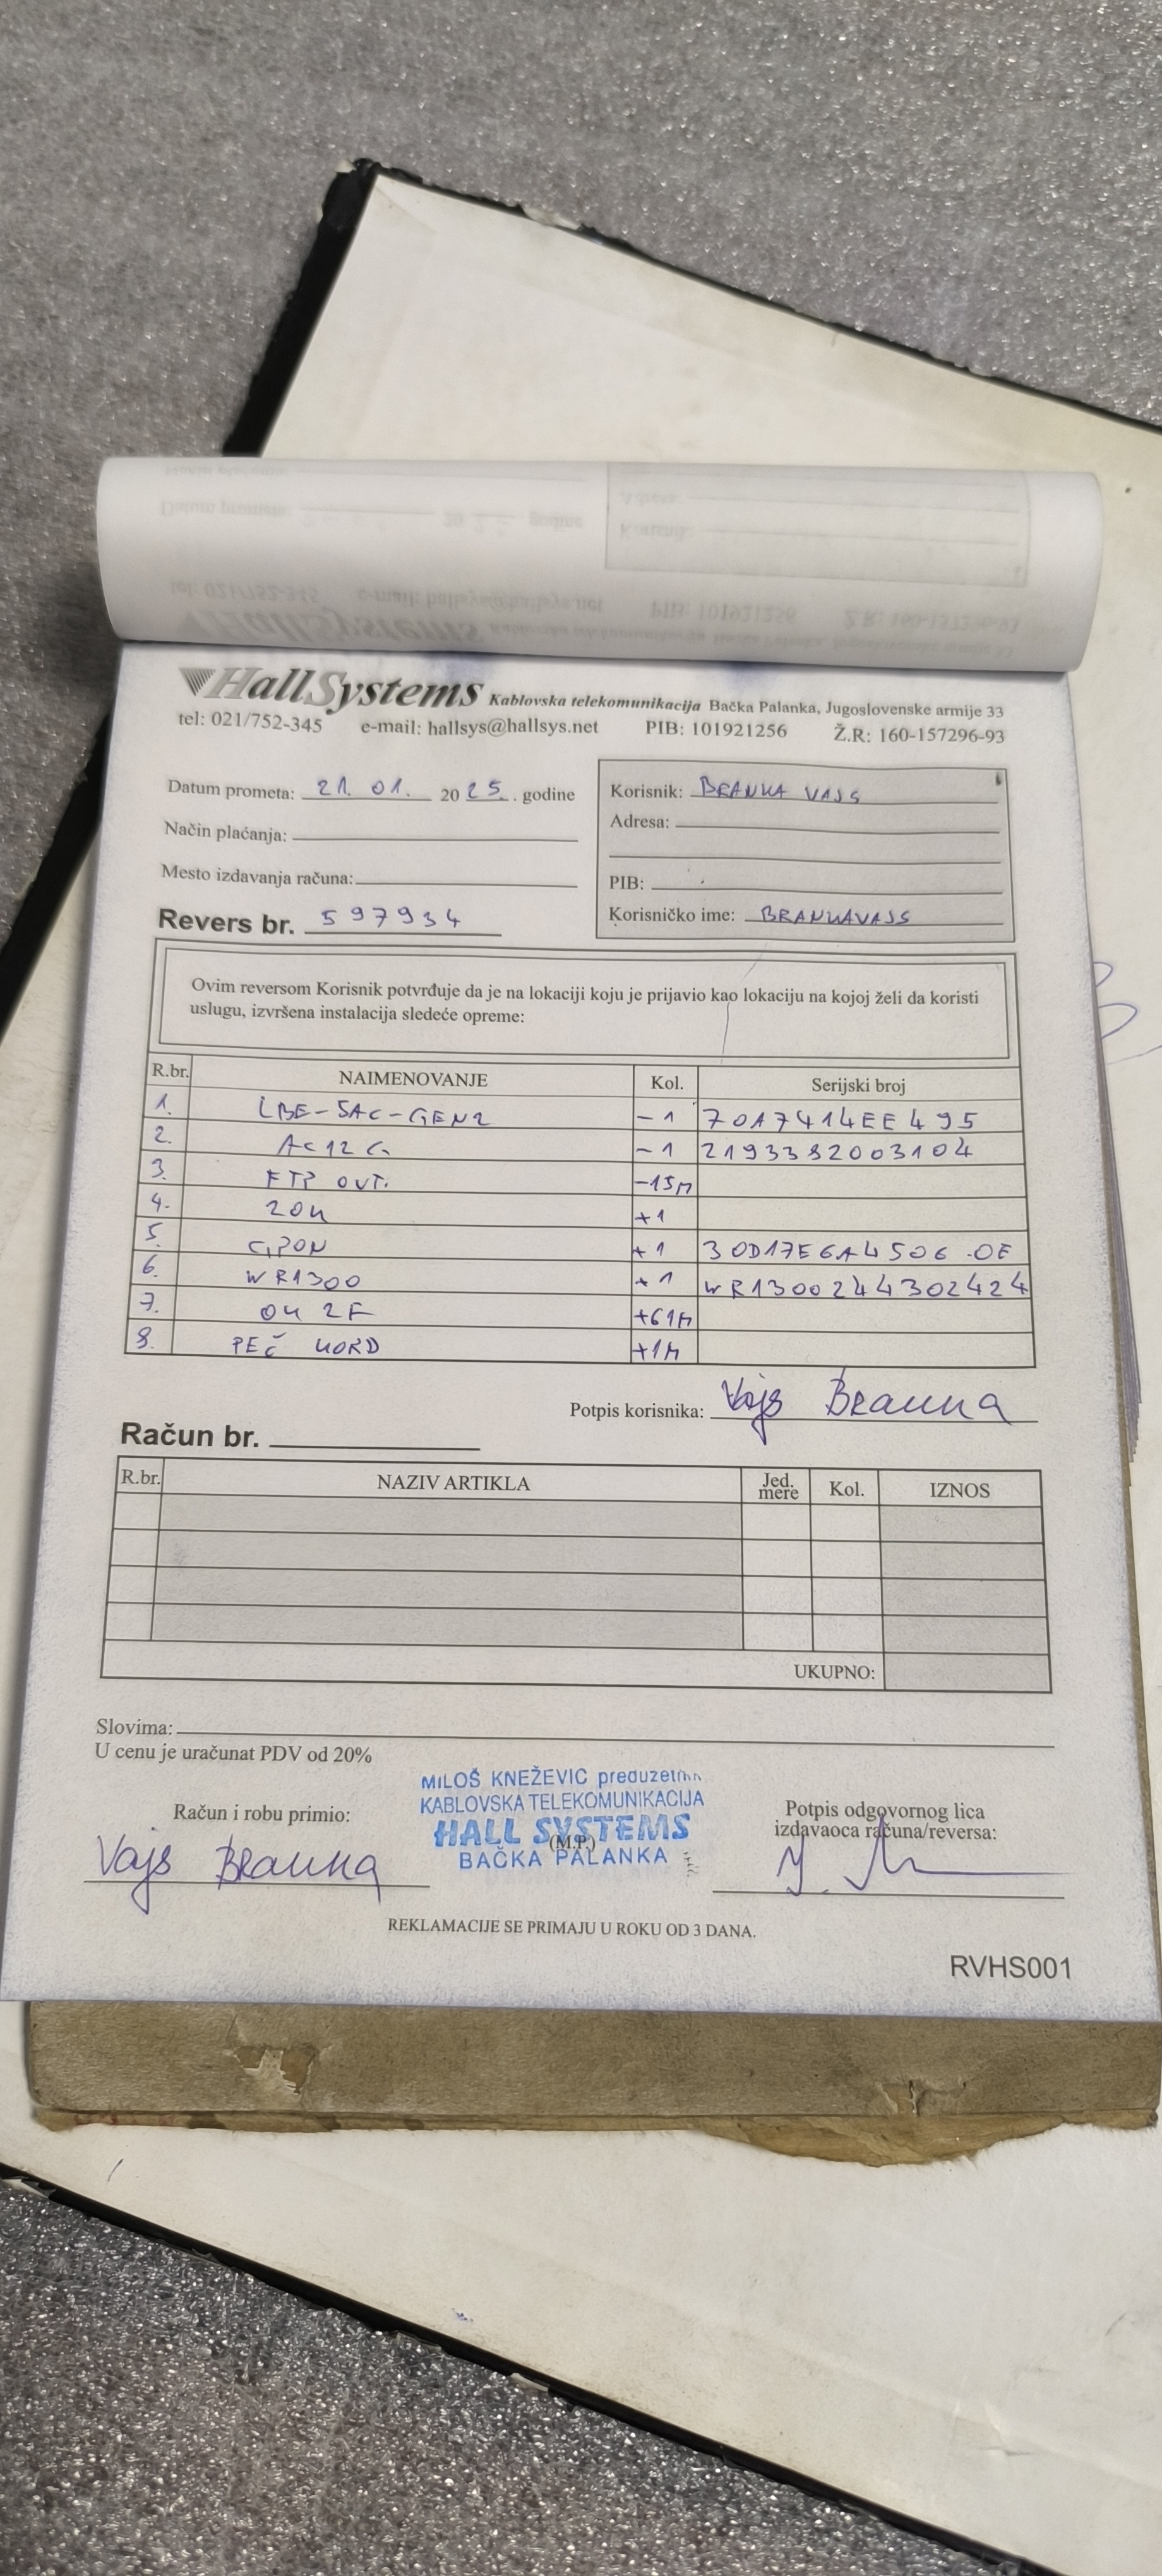 HallSystems Kablovska telekomunikacija Bačka Palanka, Jugoslovenske armije 33
tel: 021/752-345 e-mail: hallsys@hallsys.net PIB: 101921256 Ž.R: 160-157296-93
Datum prometa: 21. 01. 2025. godine
Način plaćanja:
Mesto izdavanja računa:
Revers br. 597934
Korisnik: BRANKA VAJS
Adresa:
PIB:
Korisničko ime: BRANKAVAJS
Ovim reversom Korisnik potvrđuje da je na lokaciji koju je prijavio kao lokaciju na kojoj želi da koristi
uslugu, izvršena instalacija sledeće opreme:
R.br. NAIMENOVANJE Kol. Serijski broj
1. LBE-5AC-GEN2 -1 7017414EE495
2. AC12G -1 2193382003104
3. FTP OUT. -15M
4. ZOK +1
5. GPON +1 30D17E6A4506.0E
6. WR1300 +1 WR1300244302424
7. OK 2F +61M
8. PEČ KORD +1M
Potpis korisnika: Vajs Branka
Račun br.
R.br. NAZIV ARTIKLA Jed. mere Kol. IZNOS
UKUPNO:
Slovima:
U cenu je uračunat PDV od 20%
Račun i robu primio:
Vajs Branka
MILOŠ KNEŽEVIC preduzetnik
KABLOVSKA TELEKOMUNIKACIJA
HALL SYSTEMS
(M.P.)
BAČKA PALANKA
Potpis odgovornog lica
izdavaoca računa/reversa:
REKLAMACIJE SE PRIMAJU U ROKU OD 3 DANA.
RVHS001